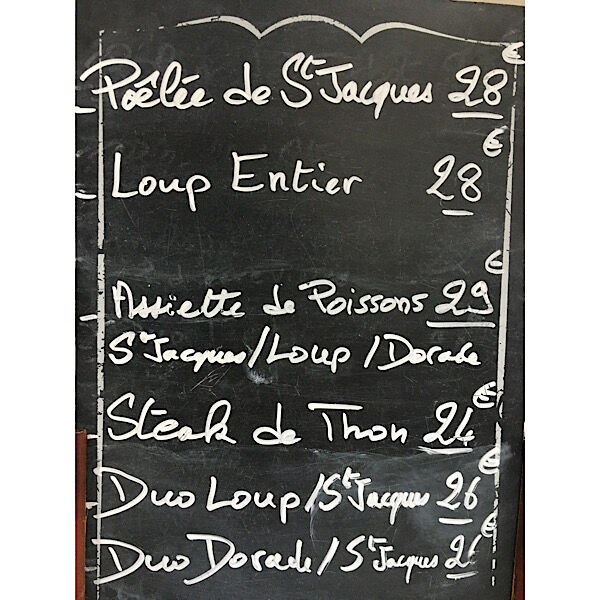 - Poêlée de St Jacques 28 €
Loup Entier 28 €
- Assiette de Poissons 29 €
St Jacques / Loup / Dorade
- Steak de Thon 24 €
- Duo Loup / St Jacques 26 €
- Duo Dorade / St Jacques €